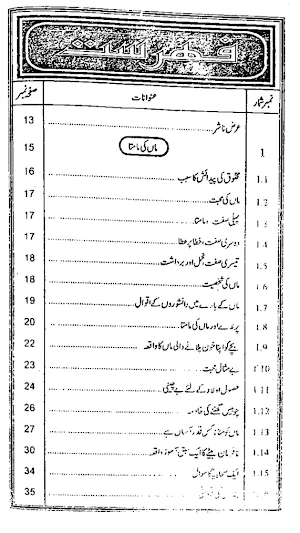 فہرست
نمبر شمار عنوانات صفحہ نمبر
عرض ناشر 13
1 ماں کی مامتا 15
1.1 مخلوق کی پیدائش کا سبب 16
1.2 ماں کی محبت 17
1.3 پہلی صفت، مامتا 17
1.4 دوسری صفت، خطا پر عطا 17
1.5 تیسری صفت، تحمل اور برداشت 18
1.6 ماں کی شخصیت 18
1.7 ماں کے بارے میں دانشوروں کے اقوال 19
1.8 پرندے اور ماں کی مامتا 20
1.9 بچے کو اپنا خون پلانے والی ماں کا واقعہ 22
1.10 بے مثال محبت 23
1.11 حصول اولاد کے لئے بے چینی 24
1.12 چوبیس گھنٹے کی خادمہ 26
1.13 ماں کو منانا کس قدر آسان ہے 27
1.14 نافرمان بیٹے کا ایک سبق آموز واقعہ 30
1.15 ایک صحابیہ کا سوال 34
35